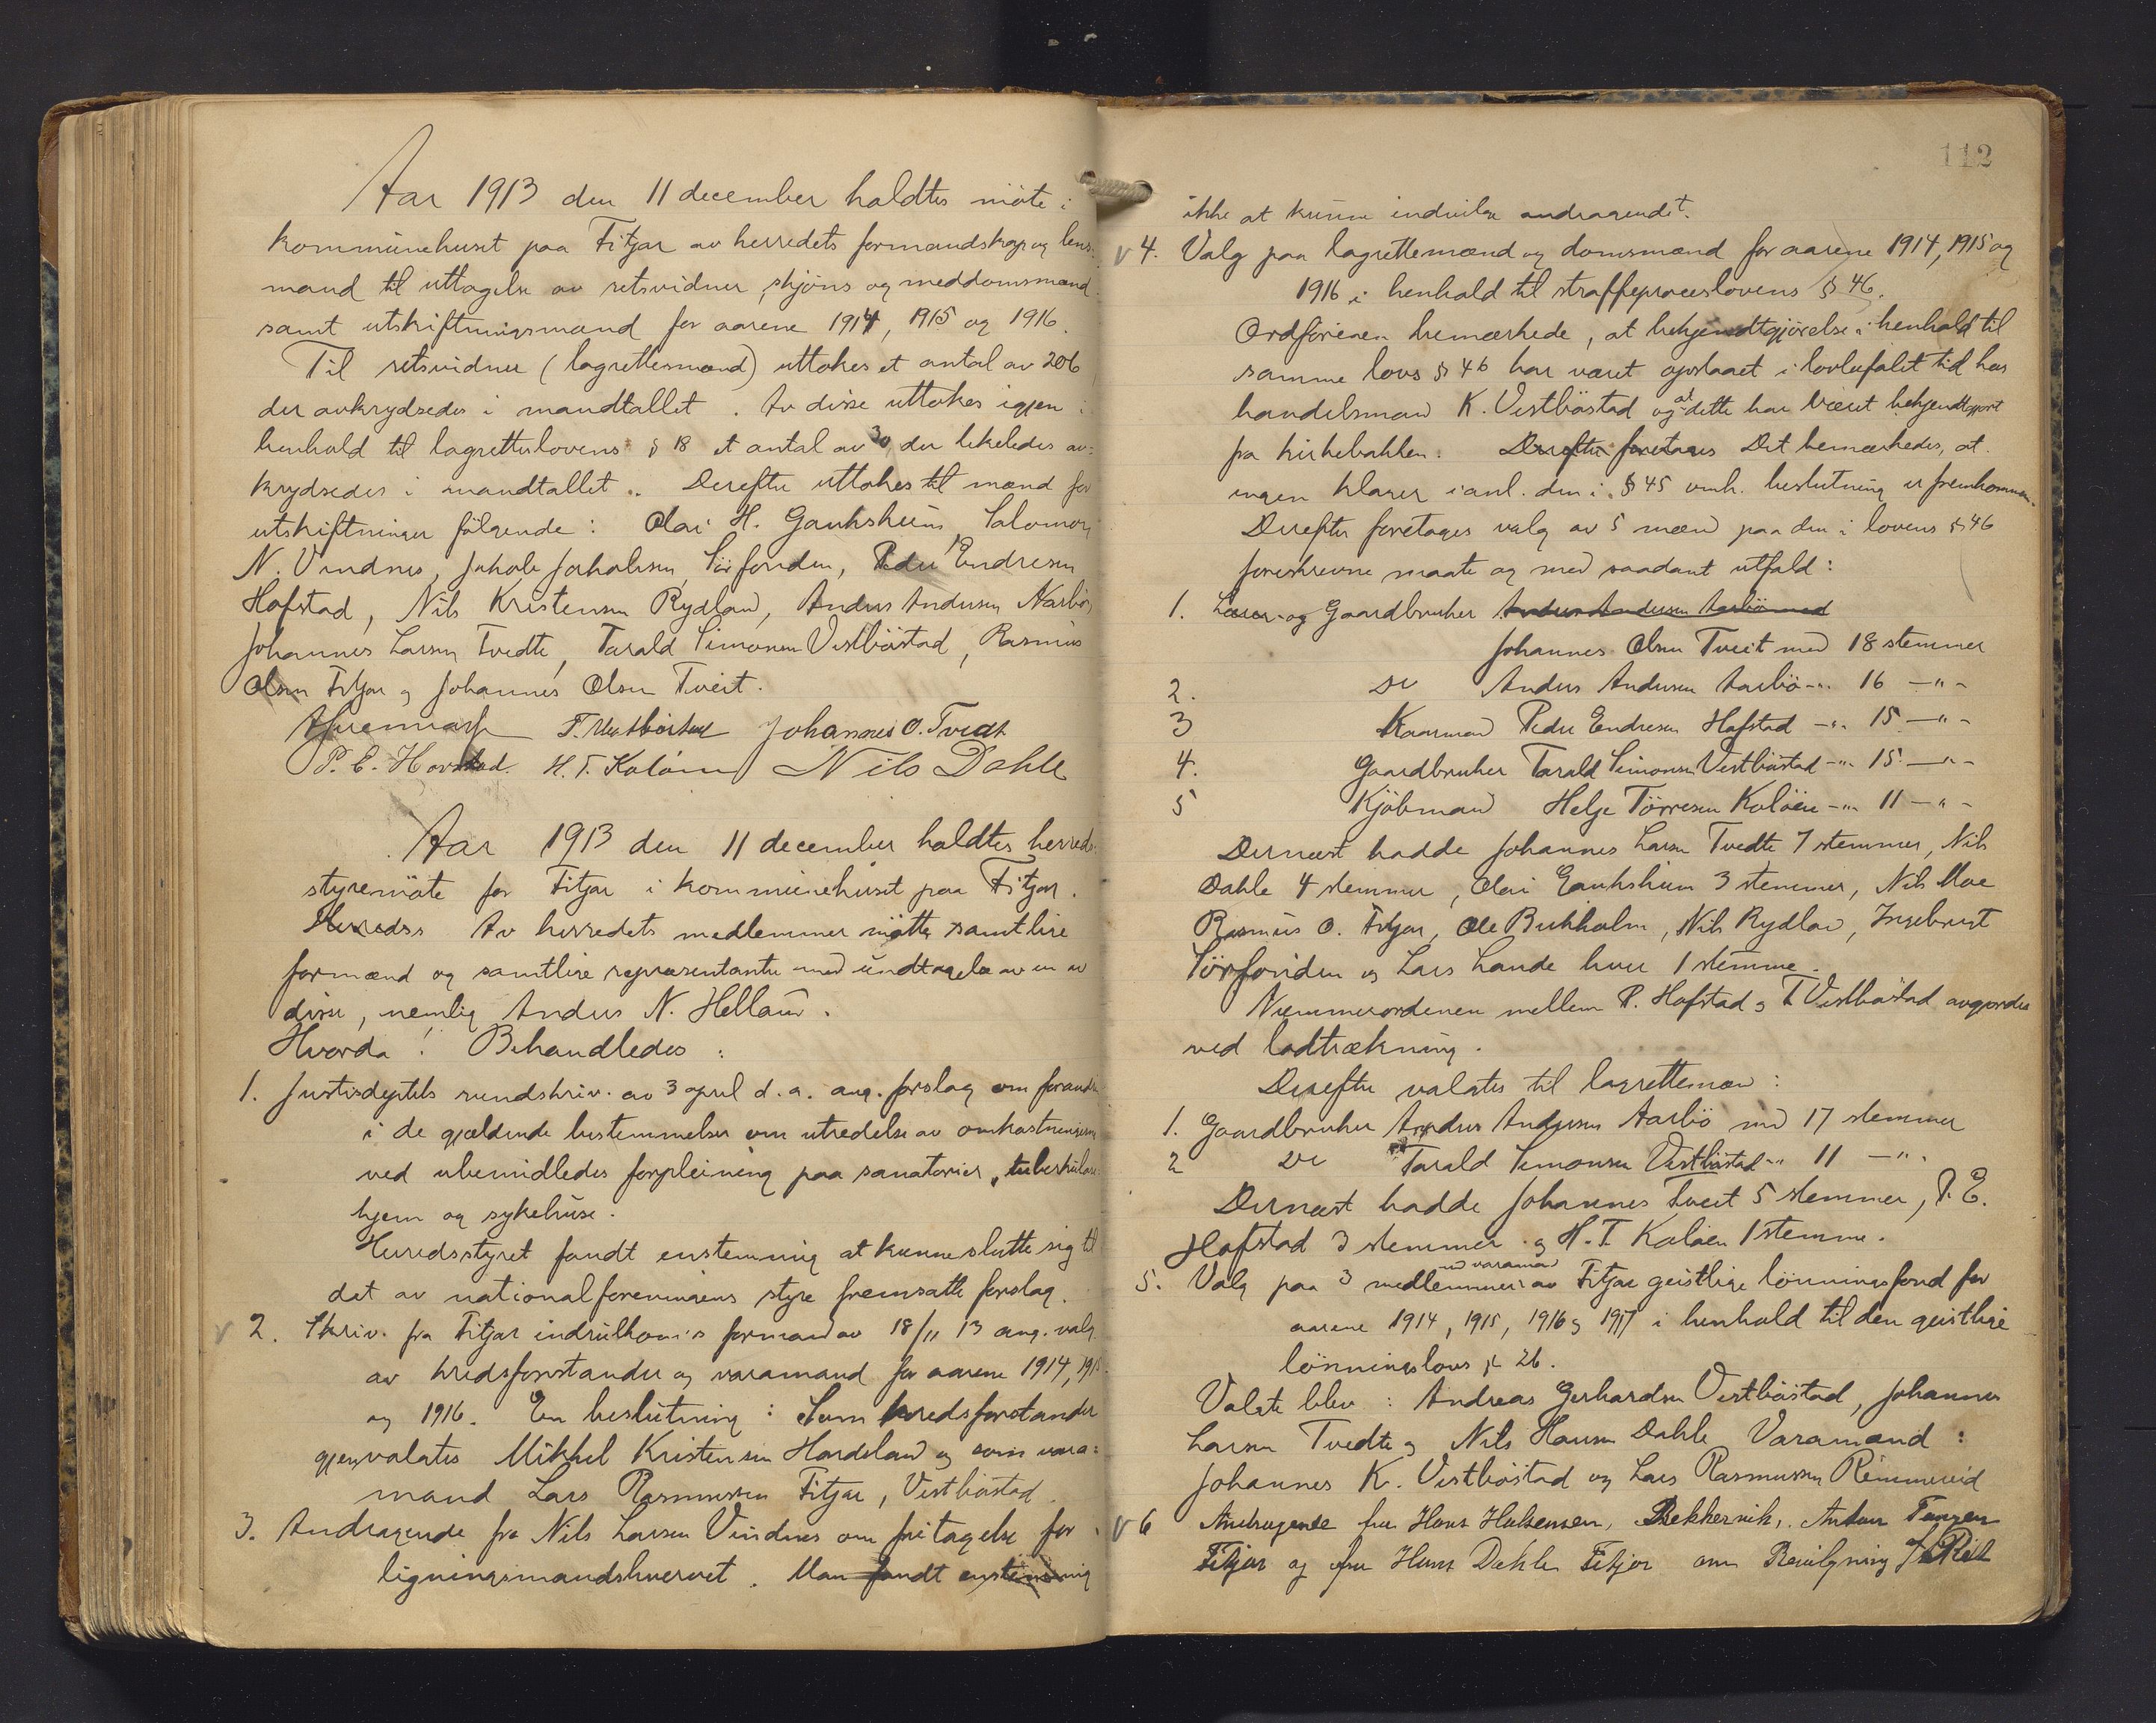 Aar 1913 den 11 december holdtes möte i
kommünehuset paa Fitjar av herredets formandskap og lens-
mand til uttagelse av retsvidner, skjöns og meddomsmænd
samt utskiftningsmænd for aarene 1914, 1915 og 1916.
Til retsvidner (lagrettesmænd) uttokes et antal av 206
der avkrydsedes i mandtallet. Av disse uttokes igjen i
henhold til lagretteslovens § 18 et antal av 30 der likeledes av=
krydsedes i mandtallet. Derefter uttokes til mænd for
utskiftninger fölgende: Olai H. Gauksheim, Salomon
N. Vindnes, Jakob Jakobsen Sörfonden, Peder Endresen
Hofstad, Nils Kristensen Rydland, Anders Andersen Aarbö,
Johannes Larsen Tvedte, Tarald Simonsen Vestböstad, Rasmüs
Olsen Fitjar og Johannes Olsen Tveit.
T. Vestböstad Johannes O. Tvedt
P. E. Hovstad. H. T. Kalöen Nils Dahle
Aar 1913 den 11 december holdtes herreds-
styremöte for Fitjar i kommünehuset paa Fitjar.
Herreds Av herredets medlemmer mötte samtlige
formænd og samtlige repræsentanter med ündtagelse av en av
disse, nemlig Anders N. Helland.
Hvorda! Behandledes:
1. Justisdeptets rundskriv. av 3 april d. a. ang. forslag om forandr
i de gjældende bestemmelser om utredelse av omkostningerne
ved ubemidledes forpleining paa sanatorier, tuberkülose
hjem og sykehüse.
Herredsstyret fandt enstemmig at kunne slutte sig til
det av nationalforeningens styre fremsatte forslag.
v 2. Skriv. fra Fitjar indrulkom's formand av 18/11 13 ang. valg
av kredsforstander og varamand for aarene 1914, 1915
og 1916. En beslütning: Som kredsforstander
gjenvalgtes Mikkel Kristensen Hardeland og som vara=
mand Lars Rasmussen Fitjar, Vestböstad.
3. Andragende fra Nils Larsen Vindnes om fritagelse for
ligningsmandshvervet. Man fandt enstemmig
112
ikke at künne indvilge andragendet.
v 4. Valg paa lagrettemænd og domsmænd for aarene 1914, 1915 og
1916 i henhold til straffeproceslovens § 46.
Ordföreren bemærkede, at bekjendtgjörelse i henhold til
samme lovs § 46 har været opslaaet i lovbefalet tid hos
handelsmand K. Vestböstad og at dette har været bekjendtgjort
fra kirkebakken. Derefter foretages Det bemærkedes, at
ingen klager i anl. den i § 45 omh. beslutning er fremkommen.
Derefter foretages valg av 5 mænd paa den i lovens § 46
foreskrevne maate og med saadant utfald:
1. Lærer og Gaardbruker Anders Andersen Aarbö med
Johannes Olsen Tveit med 18 stemmer
2. Do Anders Andersen Aarbö -"- 16 -"-
3 Kaarmand Peder Endresen Hofstad -"- 15 -"-
4. Gaardbruker Tarald Simonsen Vestböstad -"- 15 -"-
5 Kjöbmand Helge Törresen Kalöen -"- 11 -"-
Dernæst hadde Johannes Larsen Tvedte 7 stemmer, Nils
Dahle 4 stemmer, Olai Gaukshiem 3 stemmer, Nils Moe
Rasmüs O. Fitjar, Ole Bukholm, Nils Rydland, Ingebrigt
Sörfonden og Lars Lande hver 1 stemme.
Nummerordenen mellem P. Hofstad og T. Vestböstad avgjordes
ved lodtrækning.
Derefter valgtes til lagrettemænd:
1. Gaardbruker Anders Andersen Aarbö med 17 stemmer
2 Do Tarald Simonsen Vestböstad -"- 11 -"-
Dernæst hadde Johannes Tveit 5 stemmer, P. E.
Hofstad 3 stemmer og H. T. Kalöen 1 stemme.
5. Valg paa 3 medlemmer med varamænd av Fitjar geistlige lönningsfond for
aarene 1914, 1915, 1916 og 1917 i henhold til den geistlige
lönningslovs § 26.
Valgte blev: Andreas Gerhardsen Vestböstad, Johannes
Larsen Tvedte og Nils Hansen Dahle Varamænd:
Johannes K. Vestböstad og Lars Rasmussen Rimmereid
v 6 Andragende fra Hans Hakensen, Bekkervik, Anton Tangen
Fitjar og fra Hans Dahle Fitjar om Bevilgning